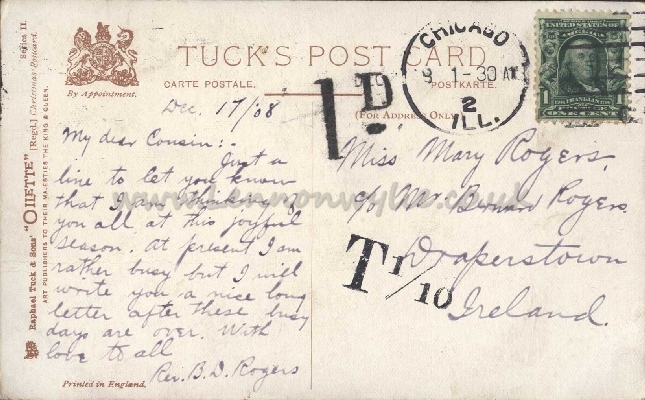 Series II.
"OILETTE" [Regd.] Christmas Postcard.
Raphael Tuck & Sons'
ART PUBLISHERS TO THEIR MAJESTIES THE KING & QUEEN.
By Appointment.
TUCK'S POST CARD
CARTE POSTALE.
POSTKARTE.
(FOR ADDRESS ONLY)
CHICAGO
1-30 AM
2
ILL.
UNITED STATES OF AMERICA
FRANKLIN
1 ONE CENT 1
1D.
T 1/10
Dec. 17/08
My dear Cousin:-
Just a
line to let you know
that I am thinking of
you all at this joyful
season. At present I am
rather busy but I will
write you a nice long
letter after these busy
days are over. With
love to all
Rev. B. D. Rogers
Miss Mary Rogers,
c/o Mr. Bernard Rogers
Draperstown
Ireland.
Printed in England.
www.lennonwylie.co.uk